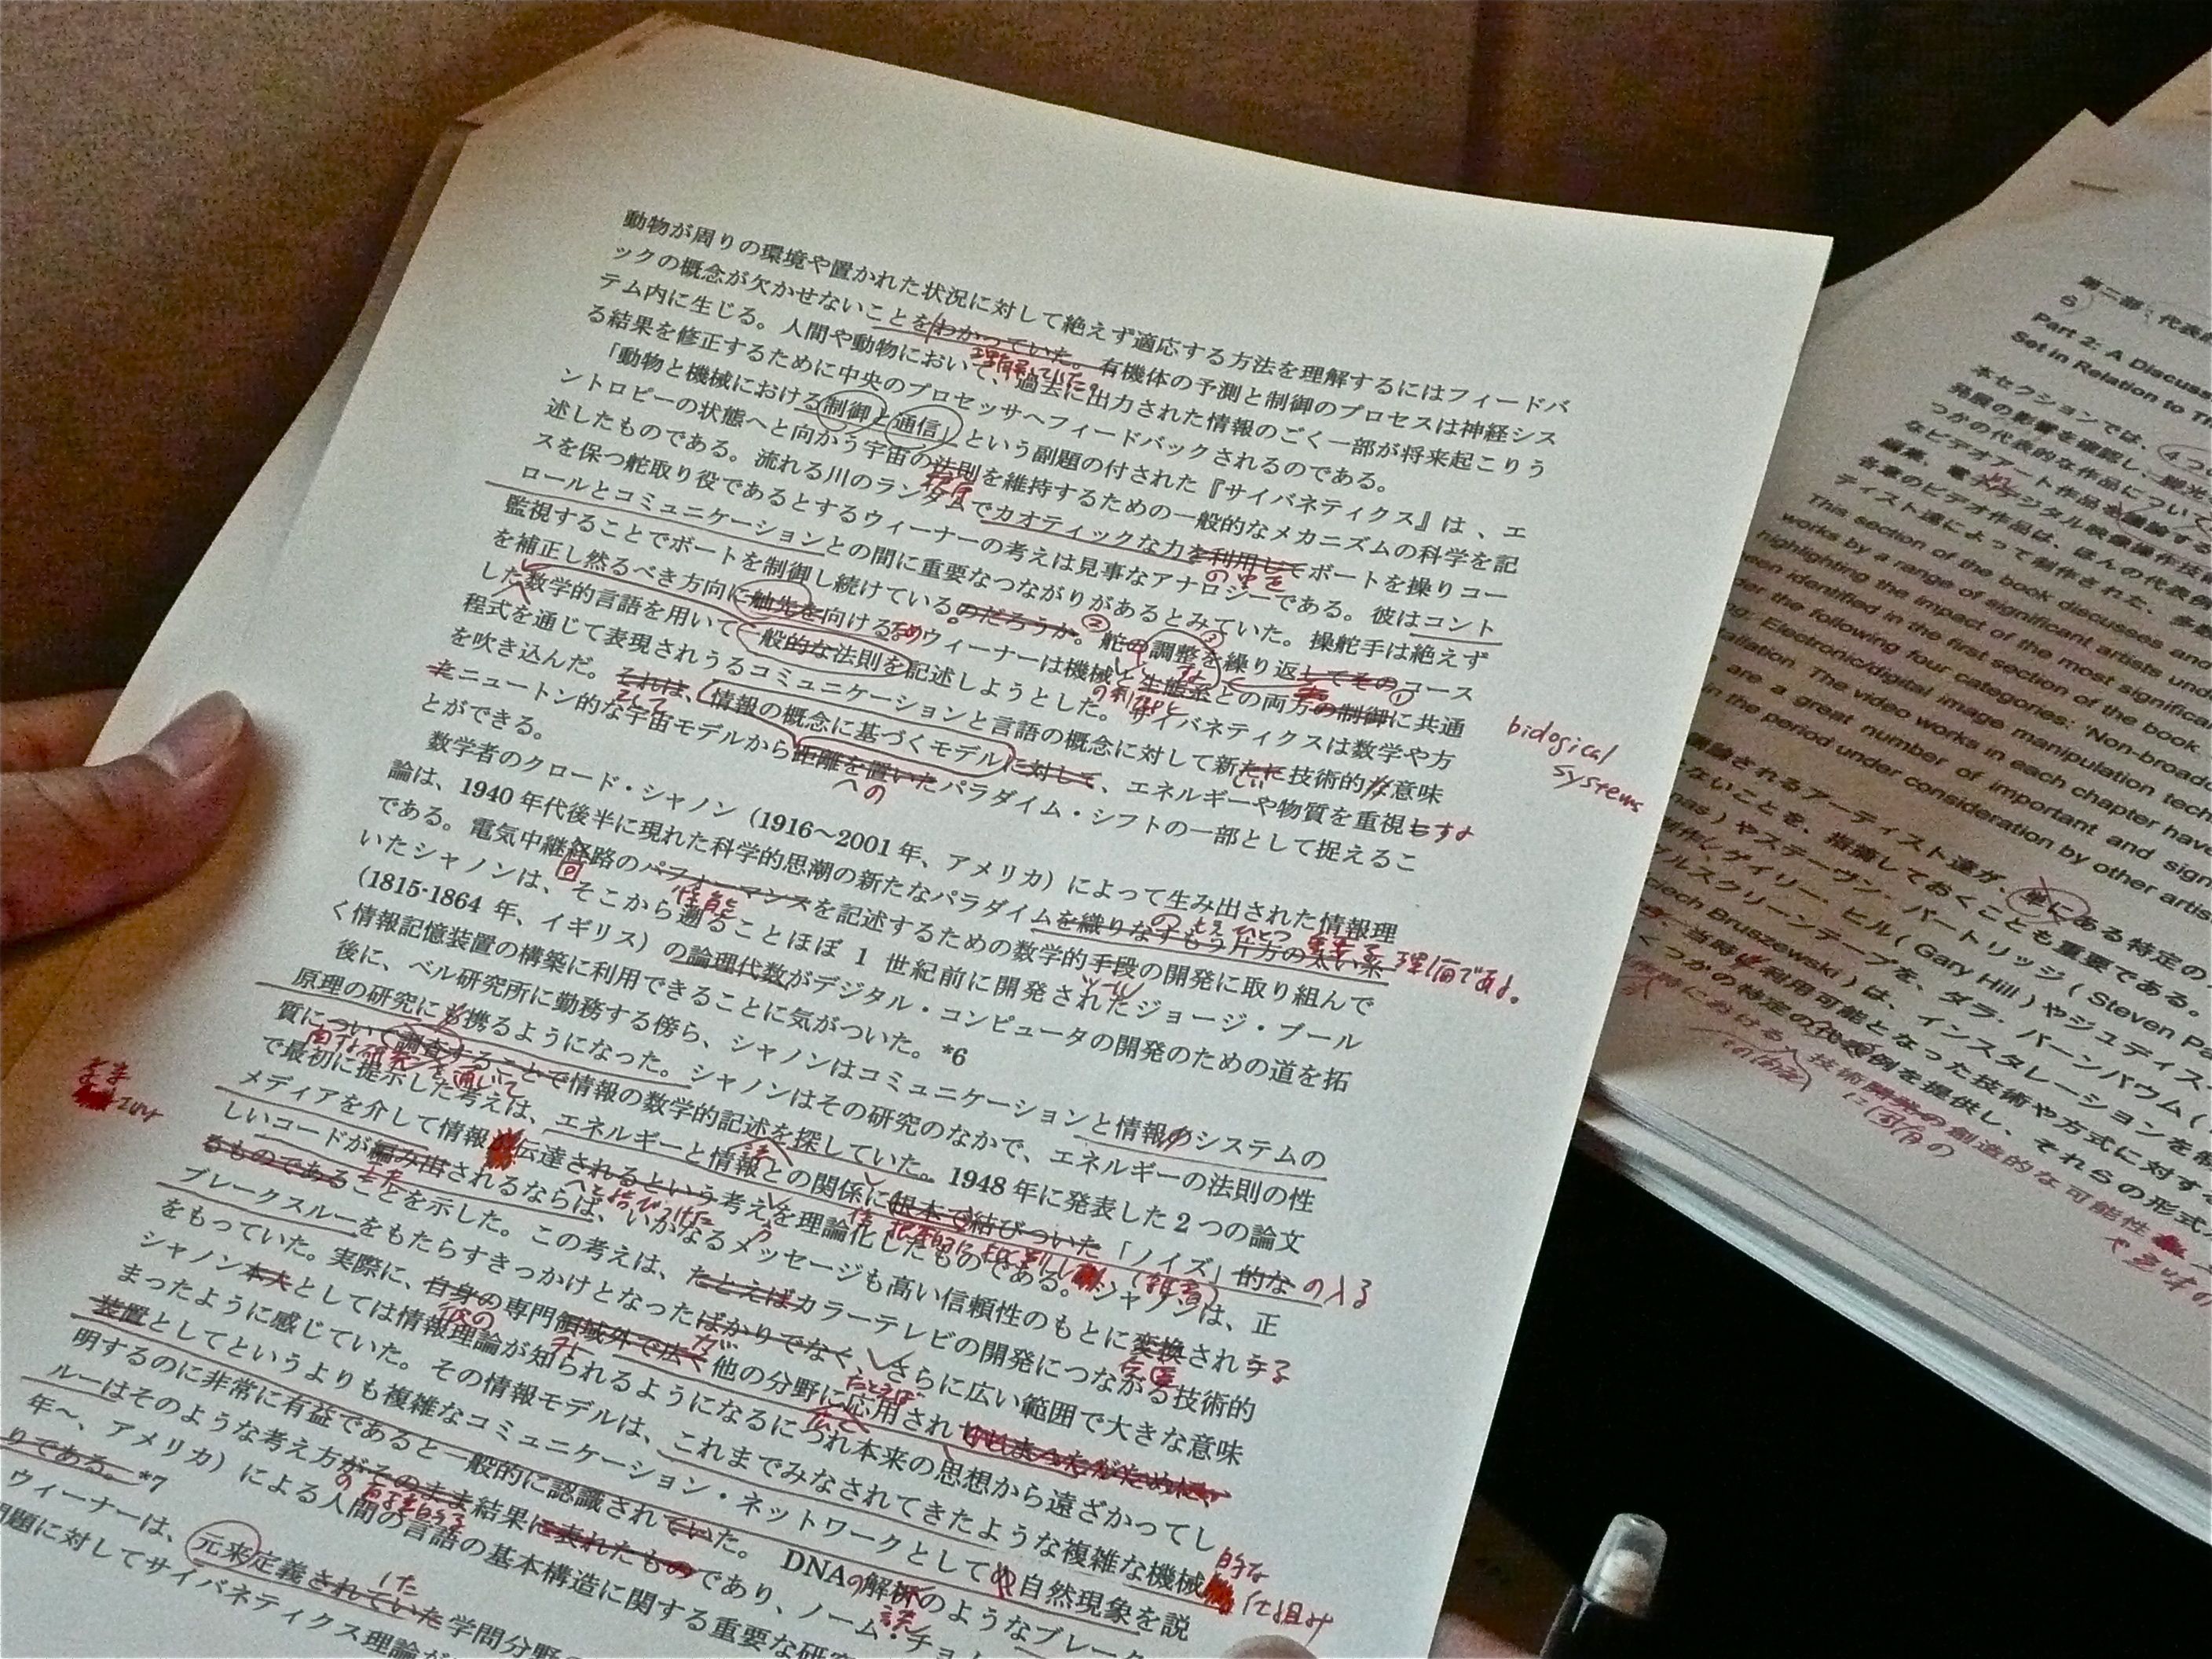 動物が周りの環境や置かれた状況に対して絶えず適応する方法を理解するにはフィードバ
ックの概念が欠かせないことをわかっていた。有機体の予測と制御のプロセスは神経シス
理解していた。
テム内に生じる。人間や動物において、過去に出力された情報のごく一部が将来起こりう
る結果を修正するために中央のプロセッサへフィードバックされるのである。
「動物と機械における制御と通信」という副題の付された『サイバネティクス』は、エ
ントロピーの状態へと向かう宇宙の法則を維持するための一般的なメカニズムの科学を記
述したものである。流れる川のランダムでカオティックな力を利用してボートを操りコー
の中を
スを保つ舵取り役であるとするウィーナーの考えは見事なアナロジーである。彼はコント
ロールとコミュニケーションとの間に重要なつながりがあるとみていた。操舵手は絶えず
監視することでボートを制御し続けているのだろうか。舵の調整を繰り返してそのコース
② ③ ①
を補正し然るべき方向に舳先を向ける。ウィーナーは機械と生態系との両方の制御に共通
ため
した数学的言語を用いて一般的な法則を記述しようとした。サイバネティクスは数学や方
biological
systems
程式を通じて表現されうるコミュニケーションと言語の概念に対して新たに技術的な意味
しい
を吹き込んだ。それは、情報の概念に基づくモデルに対して、エネルギーや物質を重視し
する
そして
たニュートン的な宇宙モデルから距離を置いたパラダイム・シフトの一部として捉えるこ
への
とができる。
数学者のクロード・シャノン（1916～2001 年、アメリカ）によって生み出された情報理
論は、1940 年代後半に現れた科学的思潮の新たなパラダイムを織りなすもう片方の太い糸
のもうひとつ
理論である。
である。電気中継経路のパフォーマンスを記述するための数学的手段の開発に取り組んで
回
性能
ツール
いたシャノンは、そこから遡ることほぼ 1 世紀前に開発されたジョージ・ブール
（1815-1864 年、イギリス）の論理代数がデジタル・コンピュータの開発のための道を拓
く情報記憶装置の構築に利用できることに気がついた。*6
後に、ベル研究所に勤務する傍ら、シャノンはコミュニケーションと情報のシステムの
原理の研究にも携るようになった。シャノンはその研究のなかで、エネルギーの法則の性
質について調査することで情報の数学的記述を探していた。1948 年に発表した 2 つの論文
を通じて
で最初に提示した考えは、エネルギーと情報との関係に根本で結びついた「ノイズ」的な
の入る
メディアを介して情報が伝達されるという考えを理論化したものである。シャノンは、正
と結びつけた
しいコードが編み出されるならば、いかなるメッセージも高い信頼性のもとに変換され
うる
るものであることを示した。この考えは、たとえばカラーテレビの開発につながる技術的
ブレークスルーをもたらすきっかけとなったばかりでなく、さらに広い範囲で大きな意味
が
たとえば
をもっていた。実際に、自身の専門領域外で広く他の分野に応用されてしまったがために、
彼の
広く
シャノン本人としては情報理論が知られるようになるにつれ本来の思想から遠ざかってし
まったように感じていた。その情報モデルは、これまでみなされてきたような複雑な機械
的な
仕組み
装置としてというよりも複雑なコミュニケーション・ネットワークとしてや自然現象を説
明するのに非常に有益であると一般的に認識されていた。DNAの解析のようなブレーク
読
ルーはそのような考え方がそのまま結果に表れたものであり、ノーム・チョム
の
年～、アメリカ）による人間の言語の基本構造に関する重要な研究
りである。*7
ウィーナーは、元来定義されていた学問分野
した
問題に対してサイバネティクス理論が
第二部：代表的
Part 2: A Discuss
Set in Relation to Th
本セクションでは、4つ
発展の影響を確認し、観光
つかの代表的な作品について
なビデオアート作品を議論する
編集、電子デジタル映像操作技
各章のビデオ作品は、ほんの代表例
ティスト達によって制作された、多数
This section of the book discusses and
works by a range of significant artists und
highlighting the impact of the most significa
een identified in the first section of the book
der the following four categories: 'Non-broad
ng; Electronic/digital image manipulation tech
tallation. The video works in each chapter have
are a great number of important and sign
in the period under consideration by other artis
議論されるアーティスト達が、単にある特定の
ないことを、指摘しておくことも重要である。
nas）やスティーヴン・パートリッジ（Steven Pa
制作しゲイリー・ヒル（Gary Hill）やジュディス・
ルスクリーンテープを、ダラ・バーンバウム（
ciech Bruszewski）は、インスタレーションを制
当時利用可能となった技術や方式に対する
くつかの特定の代表例を提供し、それらの形式
における技術開発の創造的な可能性
に固有の
や意味の